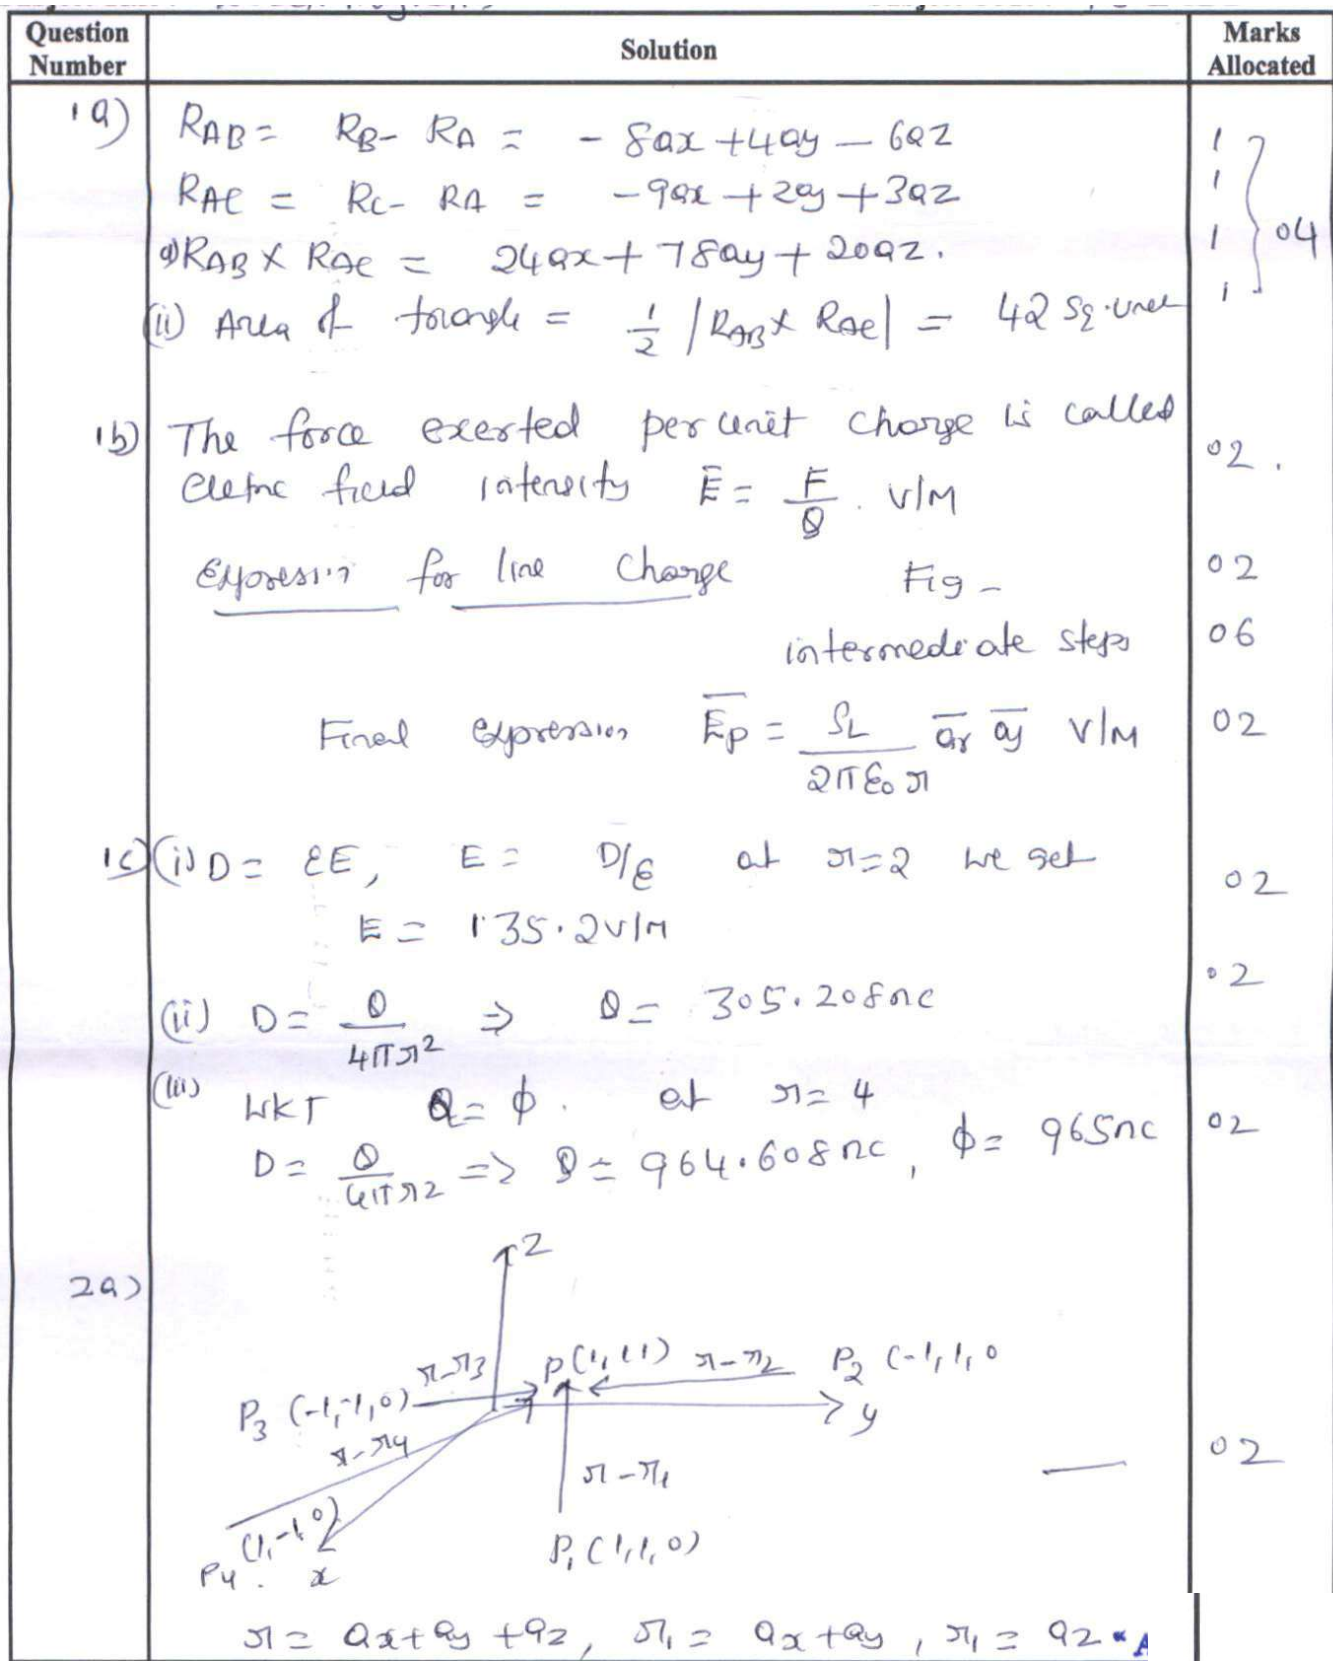 Question Number
Solution
Marks Allocated
1a) RAB = RB- RA = - 8ax +4ay - 6az 1
RAC = RC- RA = -9ax +2ay +3az 1
i) RAB X RAC = 24ax + 78ay + 20az. 1 } 04
(ii) Area of = 1/2 |RAB X RAC| = 42 sq. 1
1b) The force exerted per unit charge is called
field intensity E̅ = F/Q . V/M 02.
for line charge Fig - 02
intermediate steps 06
Final expression E̅p = ρL/2πε0 r a̅r a̅y V/M 02
1c) (i) D = εE, E = D/ε at r=2 we get 02
E = 135.2V/M
(ii) D = Q/4πr2 ⇒ Q = 305.208nc 02
(iii) WKT Q = φ . at r = 4
D = Q/4πr2 => Q = 964.608nc, φ = 965nc 02
2a)
z
r-r3 P(1,1,1) r-r2 P2 (-1,1,0
P3 (-1,-1,0)
y
r-r4
r-r1 — 02
(1,-1,0)
P4. x P1 (1,1,0)
r = ax+ay +az, r1 = ax+ay, r1 = az